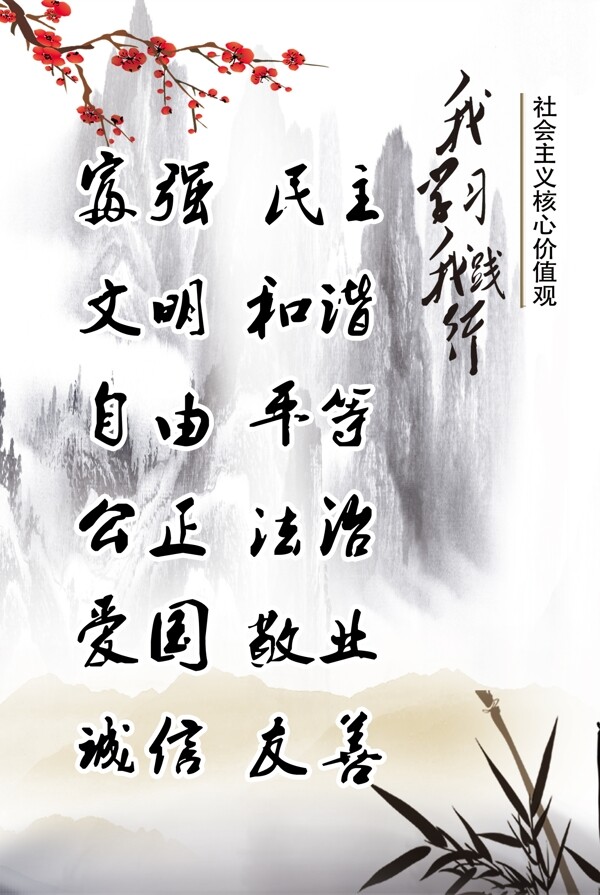 社会主义核心价值观
我学习我践行
富强 民主
文明 和谐
自由 平等
公正 法治
爱国 敬业
诚信 友善